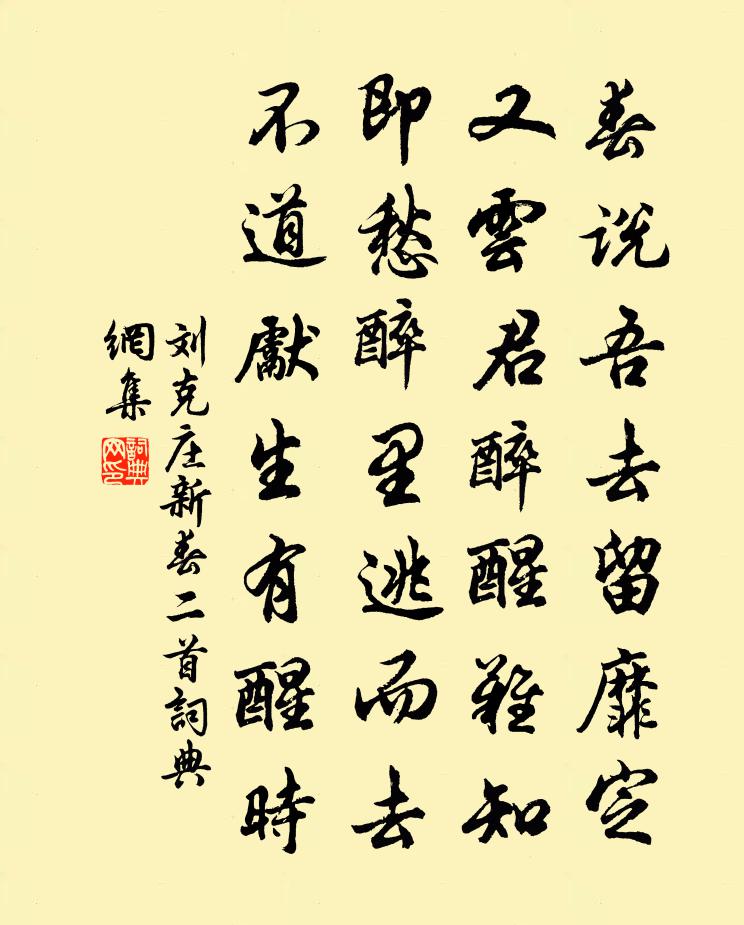 春说吾去留靡定
又雲君醉醒难知
即愁醉里逃而去
不道獻生有醒時
刘克庄新春二首詞典
網集
詞典网印